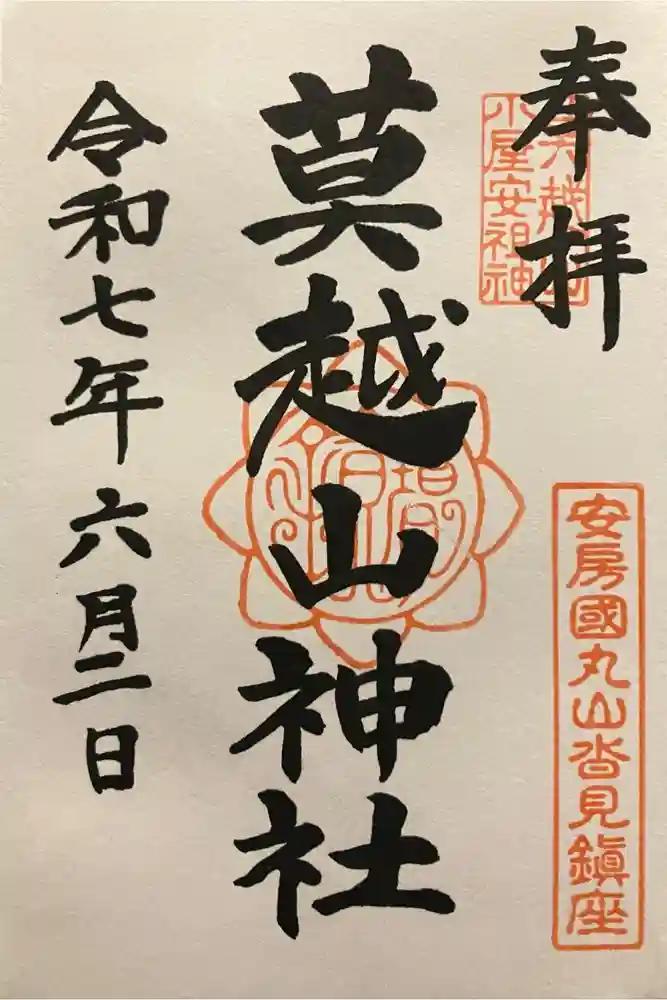 奉拝
莫越山
小屋安祖神
安房國丸山沓見鎮座
莫越山神社
令和七年六月二日